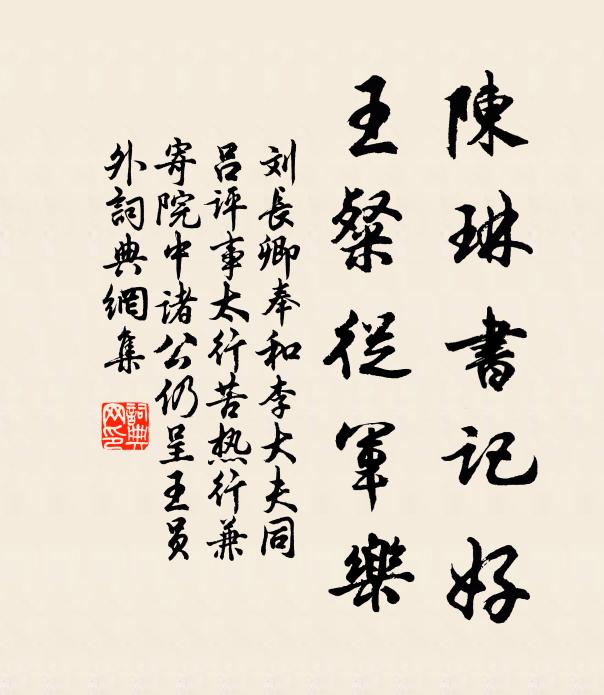 陳琳書記好
王粲從軍樂
刘長卿奉和李大夫同
吕評事太行苦热行兼
寄院中诸公仍呈王員
外詞典網集
詞典
网印